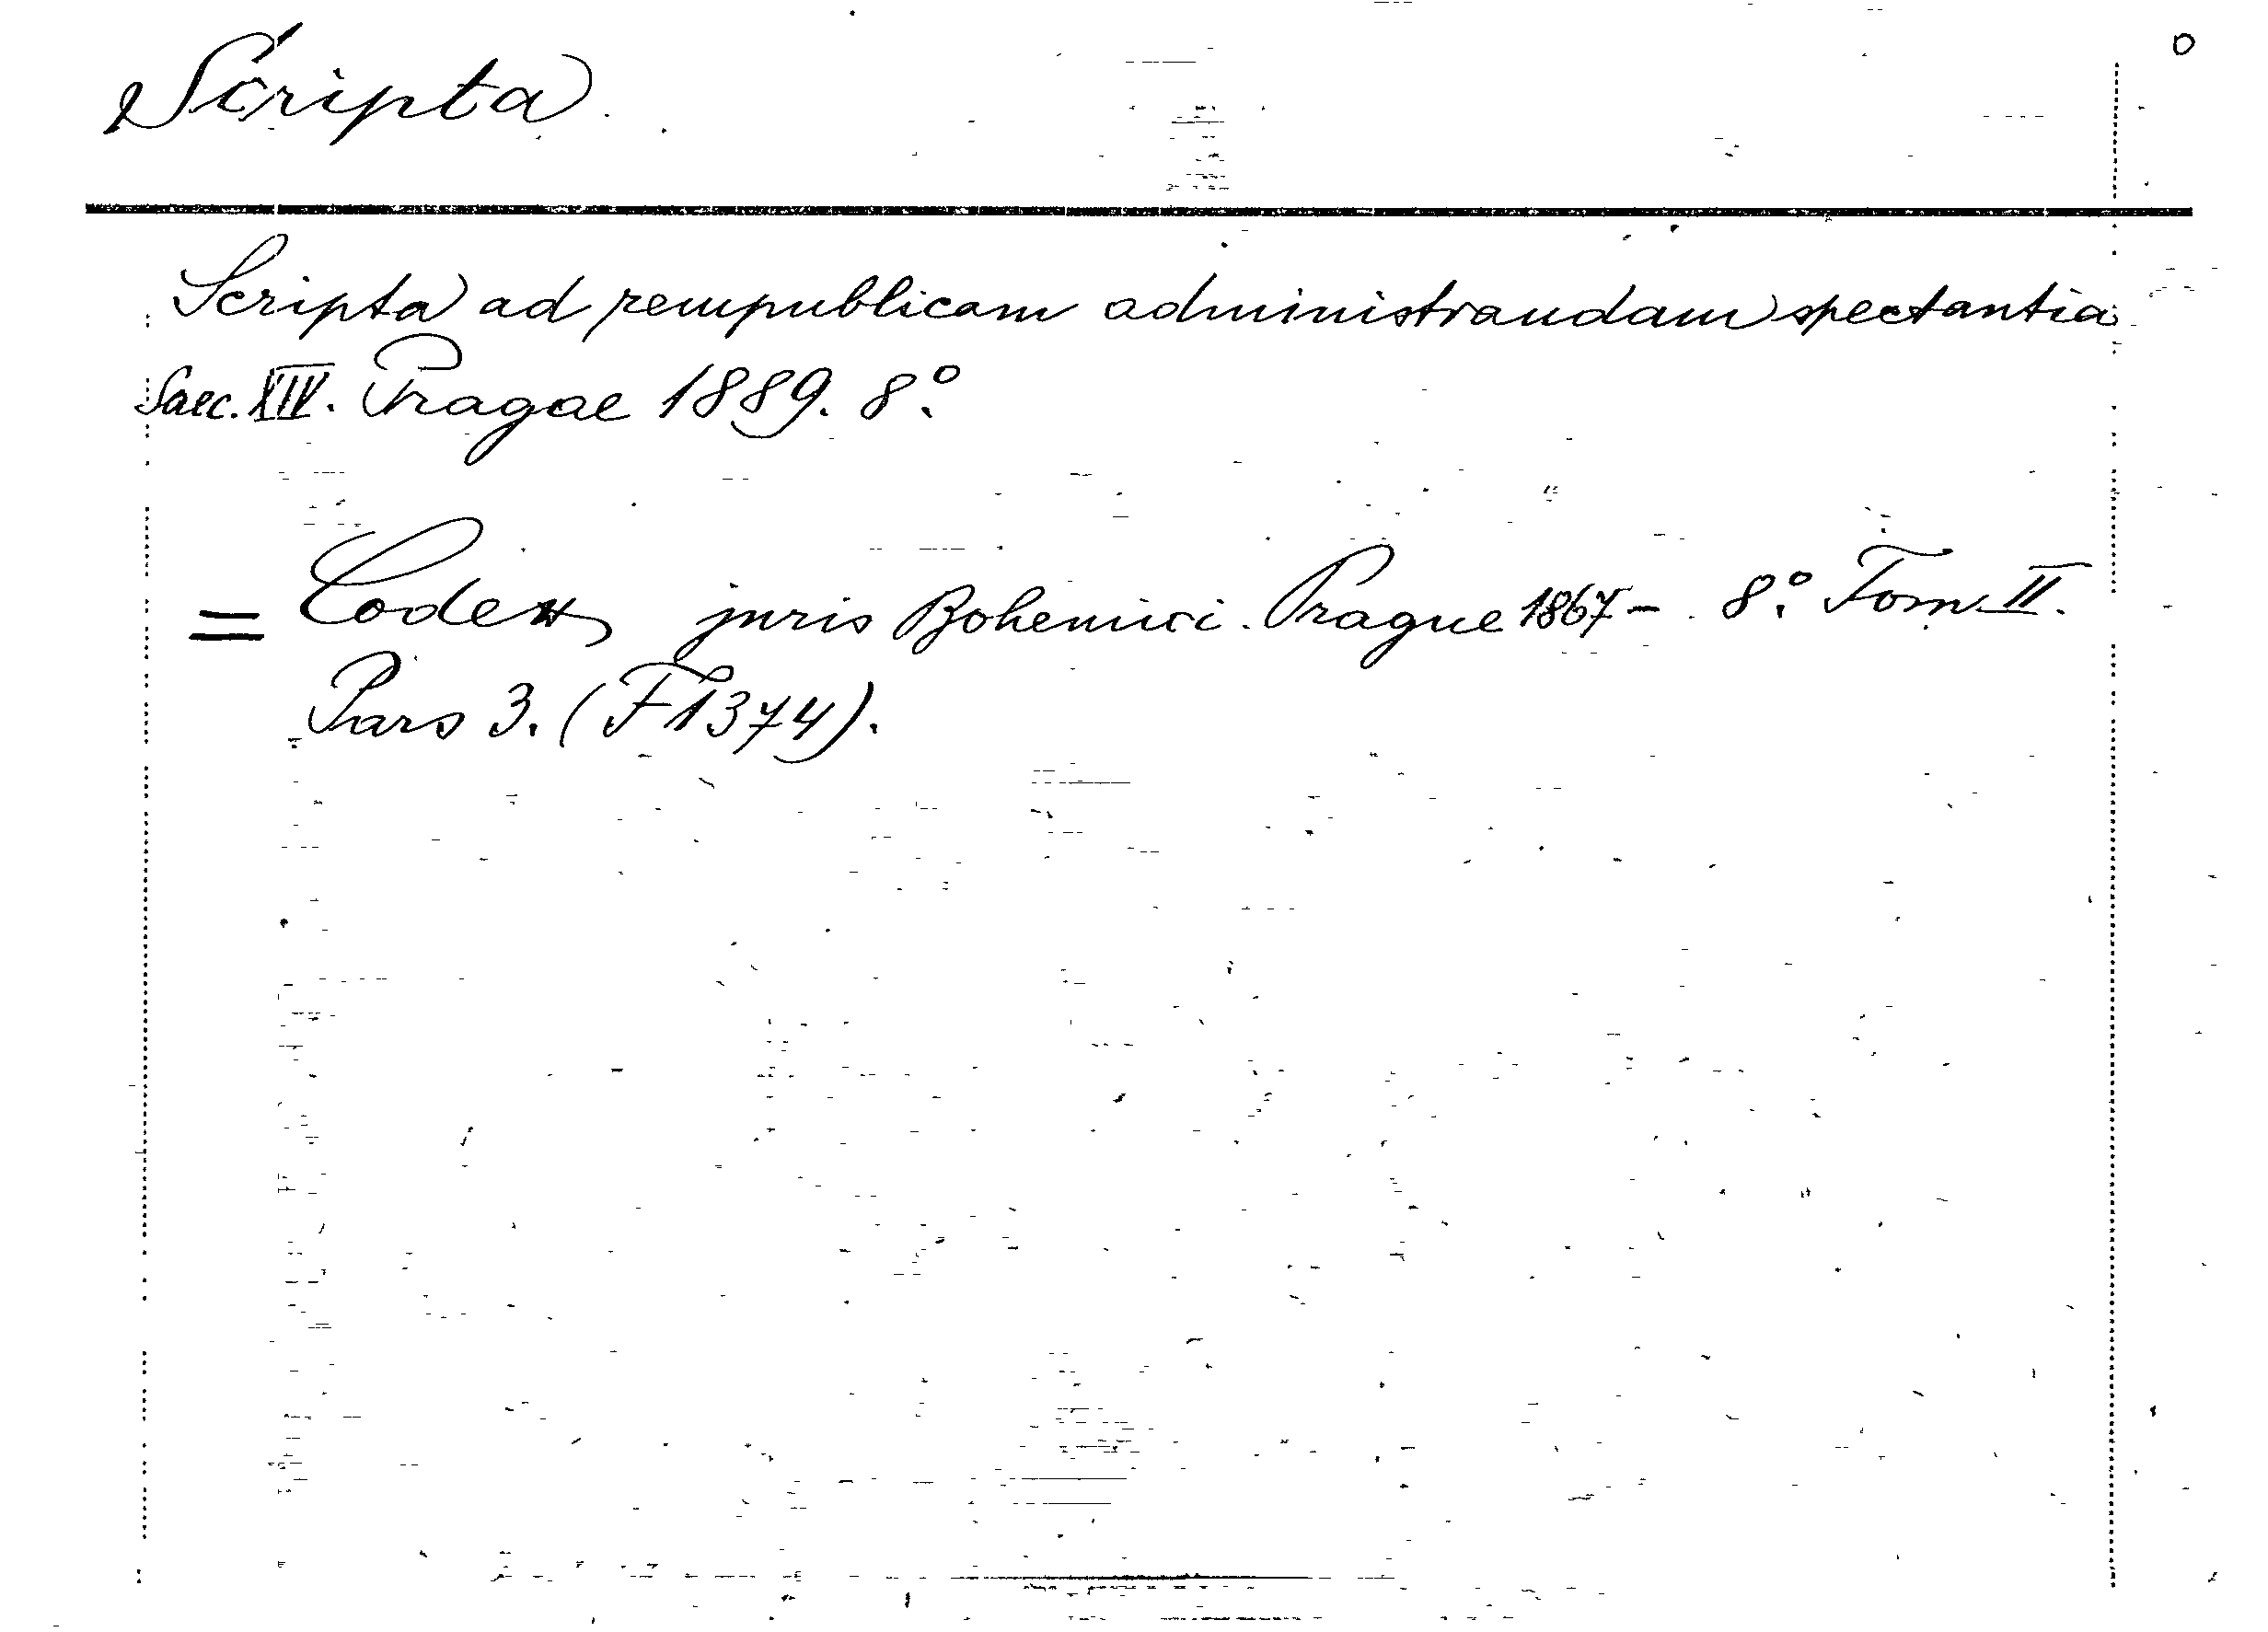 o
Scripta
Scripta ad rempublicam administrandam spectantia
Saec. XIV. Pragae 1889. 8º.
= Codex juris Bohemici. Prague 1867- 8º. Tom. II.
Pars 3. (F1374).